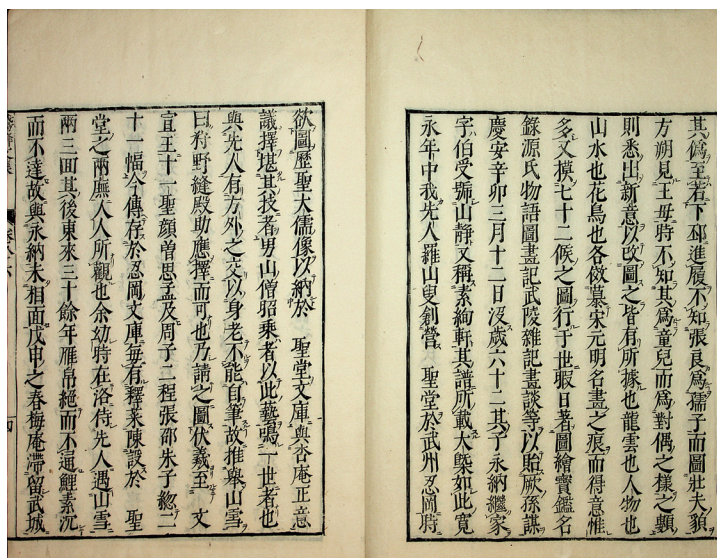 其僞至若下邳進履不知張良爲孺子而圖壯夫貌
方朔見王母時不知其爲童兒而爲對偶之樣之類
則悉出新意以改圖之皆有所據也龍雲也人物也
山水也花鳥也各倣慕宋元明名畫之痕而得意惟
多又模七十二候之圖行于世暇日著圖繪寶鑑名
錄源氏物語圖畫記武陵雜記畫談等以貽厥孫謀
慶安辛卯三月十二日沒歲六十二其子永納繼家
字伯受號山靜又稱素絢軒其譜所載大槩如此寬
永年中我先人羅山叟創營 聖堂於武州忍岡時
欲圖歷聖大儒像以納於 聖堂文庫與杏庵正意
議擇堪其技者男山僧昭乘者以此藝鳴一世者也
與先人有方外之交以身老不能自筆故推舉山雪
曰狩野縫殿助應擇而可也乃請之圖伏羲至 文
宣王十一聖顏曾思孟及周子二程張邵朱子総二
十一幅今傳存於忍岡文庫每有釋菜陳設於 聖
堂之兩廡人人所觀也余幼時在洛侍先人遇山雪
兩三回其後東來三十餘年雁帛絕而不通鯉素沉
而不達故與永納未相面戊申之春梅庵滯留武城
四